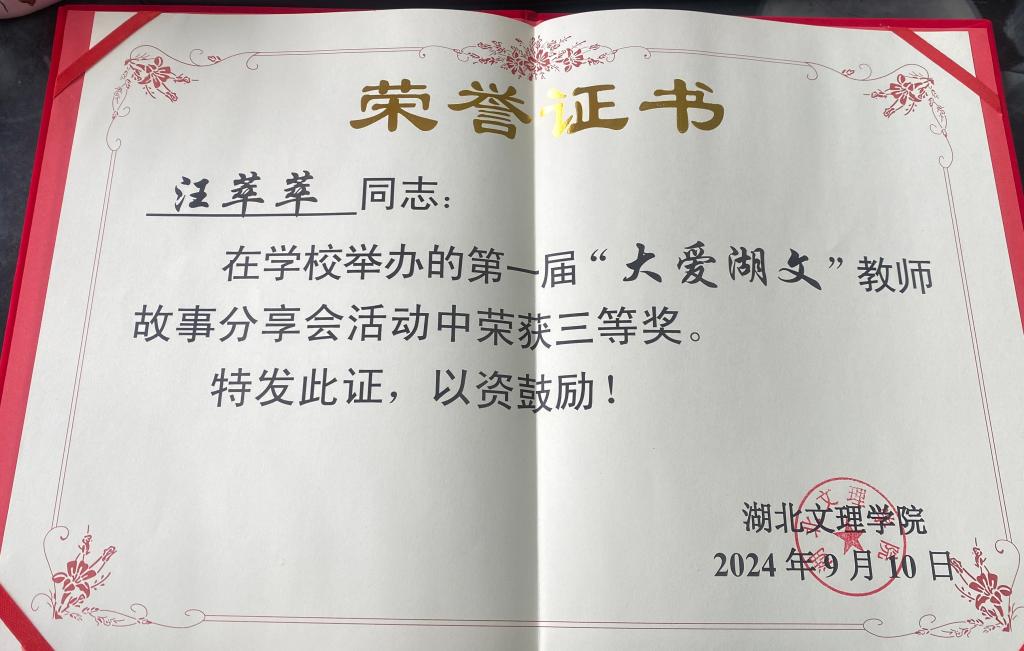 荣誉证书
汪萃萃 同志：
在学校举办的第一届“大爱湖文”教师
故事分享会活动中荣获三等奖。
特发此证，以资鼓励！
湖北文理学院
2024年9月10日
湖北文理学院